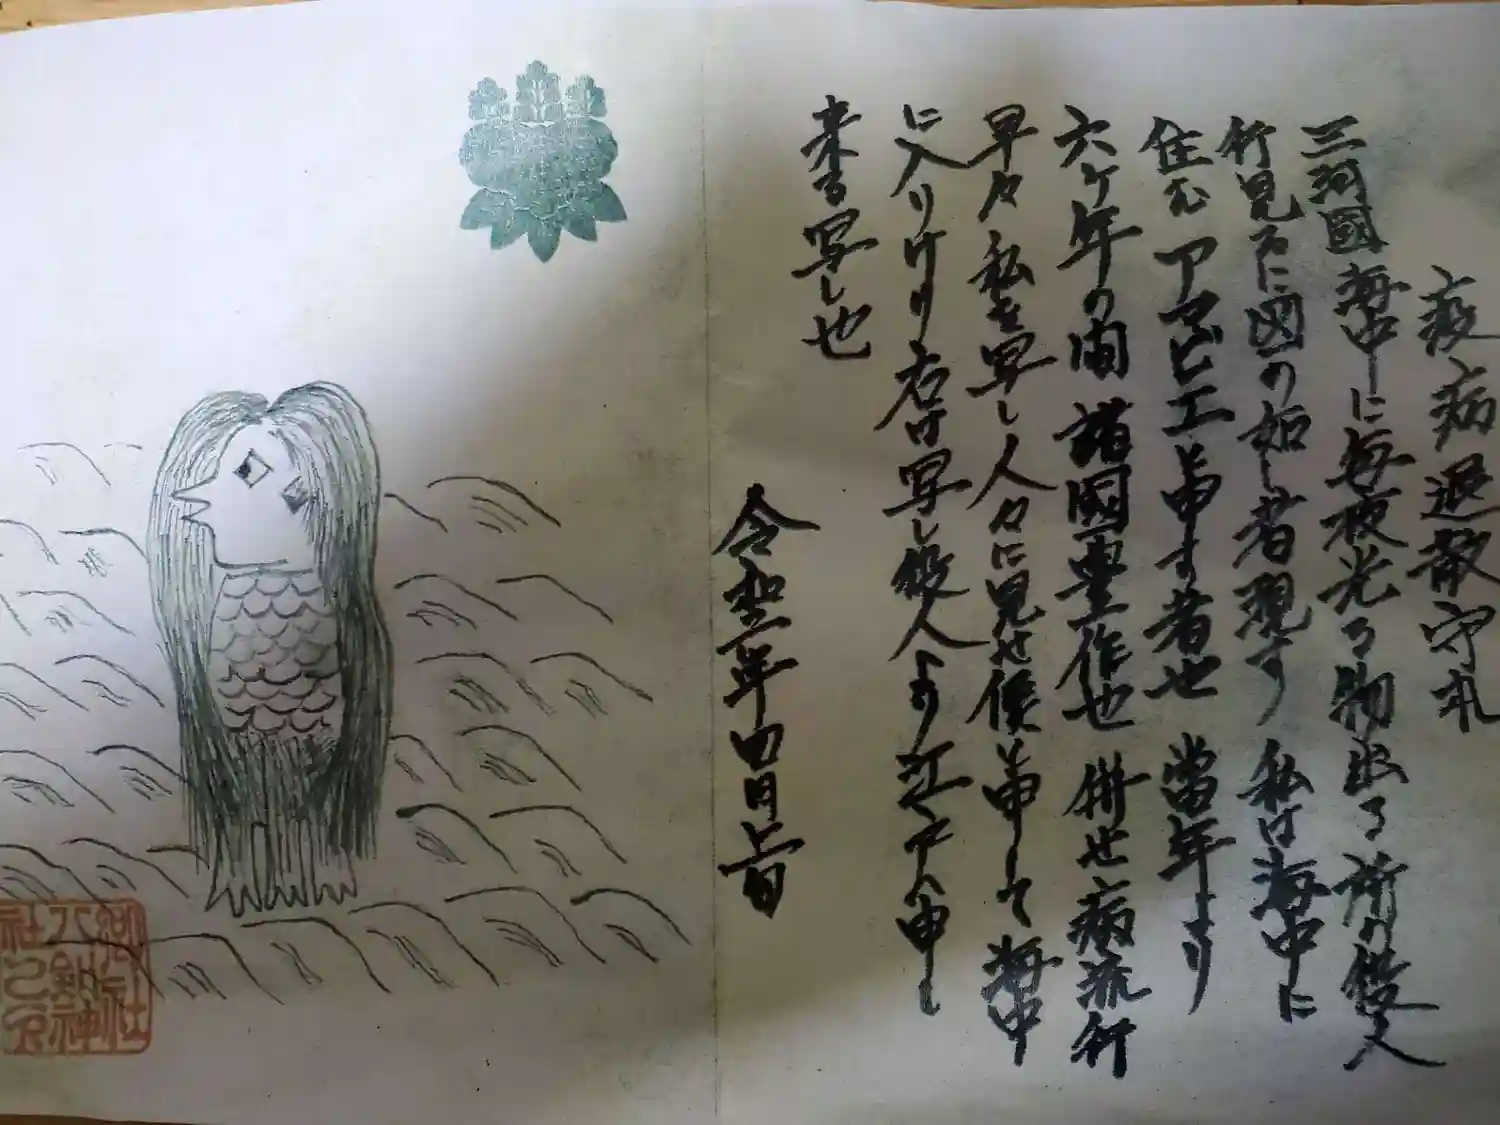 疫病退散守札
三河國海中に毎夜光る物出る所の役人
行見るに図の如し者現す私は海中に
住むアマビエと申す者也當年より
六ケ年の間諸國豊作也併せ病流行
早々私を写し人々に見せ候と申して海中
に入りけり右は写し役人より江戸へ申し
来る写し也
令和二年四月上旬
郷社
八剱神
社之印